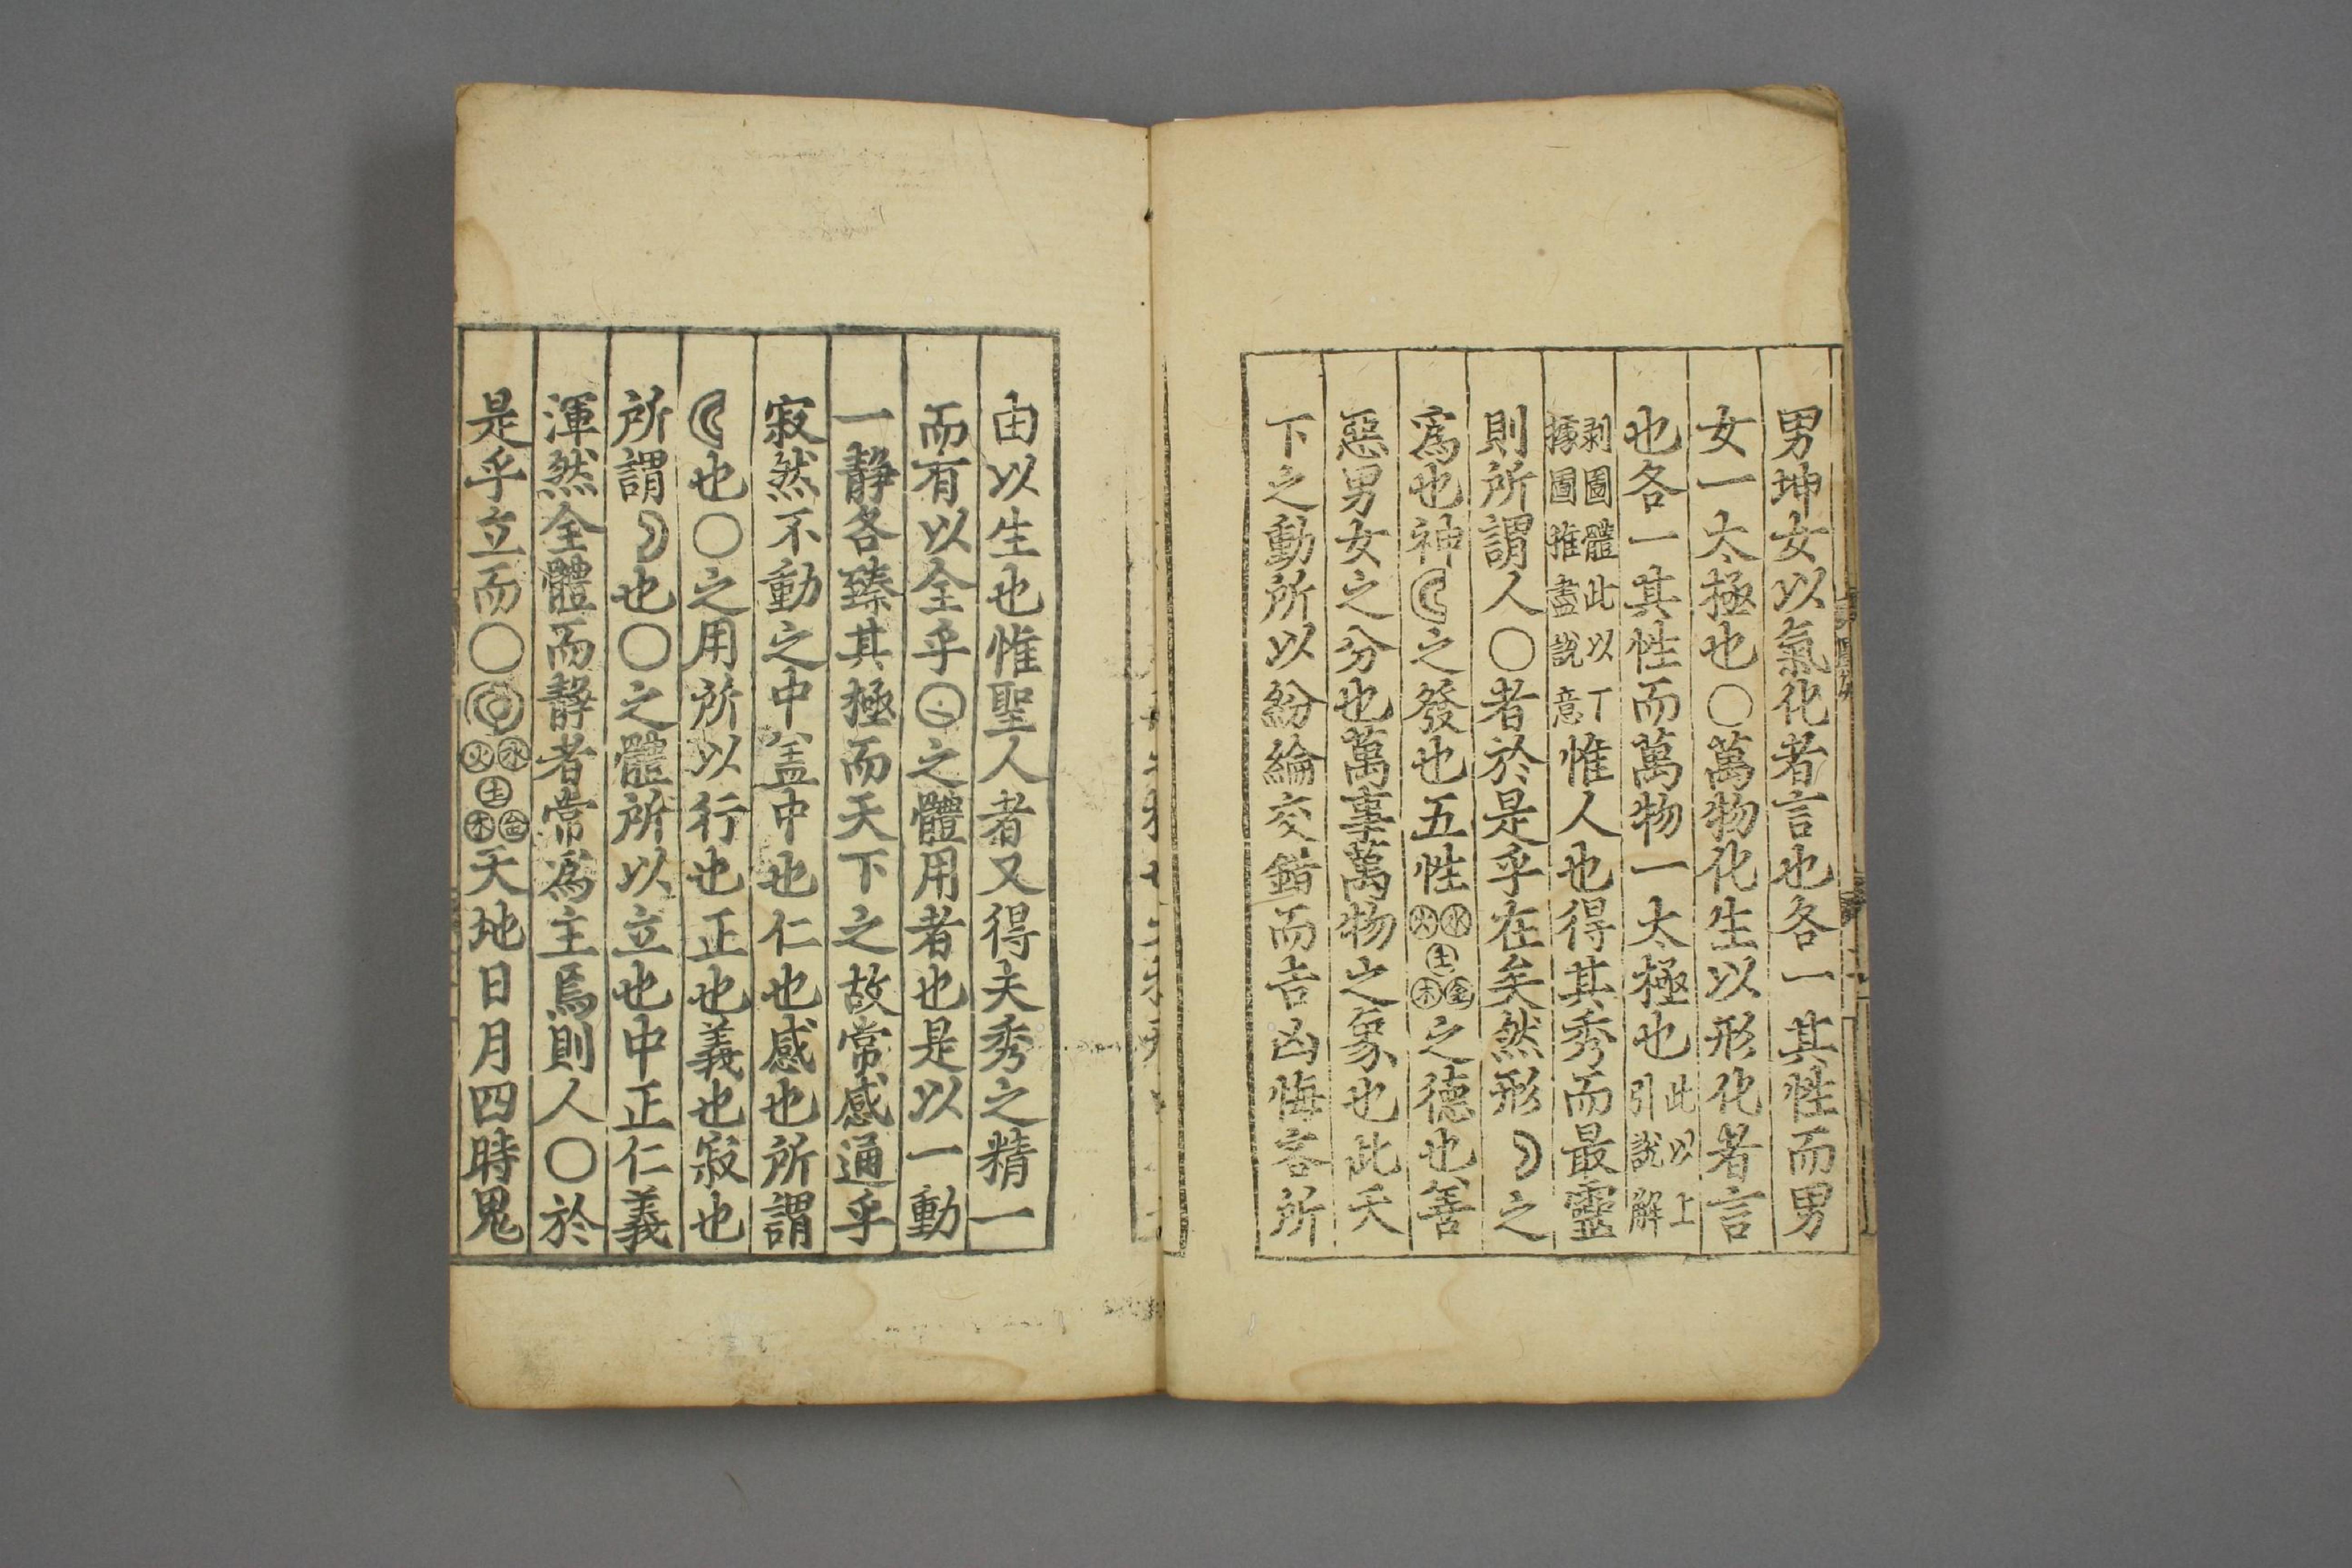 男坤女以氣化者言也各一其性而男
女一太極也○萬物化生以形化者言
也各一其性而萬物一太極也此以上引說解
剥圖體此以丁據圖推盡說意惟人也得其秀而最靈
則所謂人○者於是乎在矣然形☽之
爲也神☾之發也五性㊌㊋㊏㊎㊍之德也善
惡男女之分也萬事萬物之象也此天
下之動所以紛綸交錯而吉凶悔吝所
由以生也惟聖人者又得夫秀之精一
而有以全乎☉之體用者也是以一動
一靜各臻其極而天下之故常感通乎
寂然不動之中盖中也仁也感也所謂
☾也○之用所以行也正也義也寂也
所謂☽也○之體所以立也中正仁義
渾然全體而靜者常爲主焉則人○於
是乎立而○◎㊌㊋㊏㊎㊍天地日月四時鬼